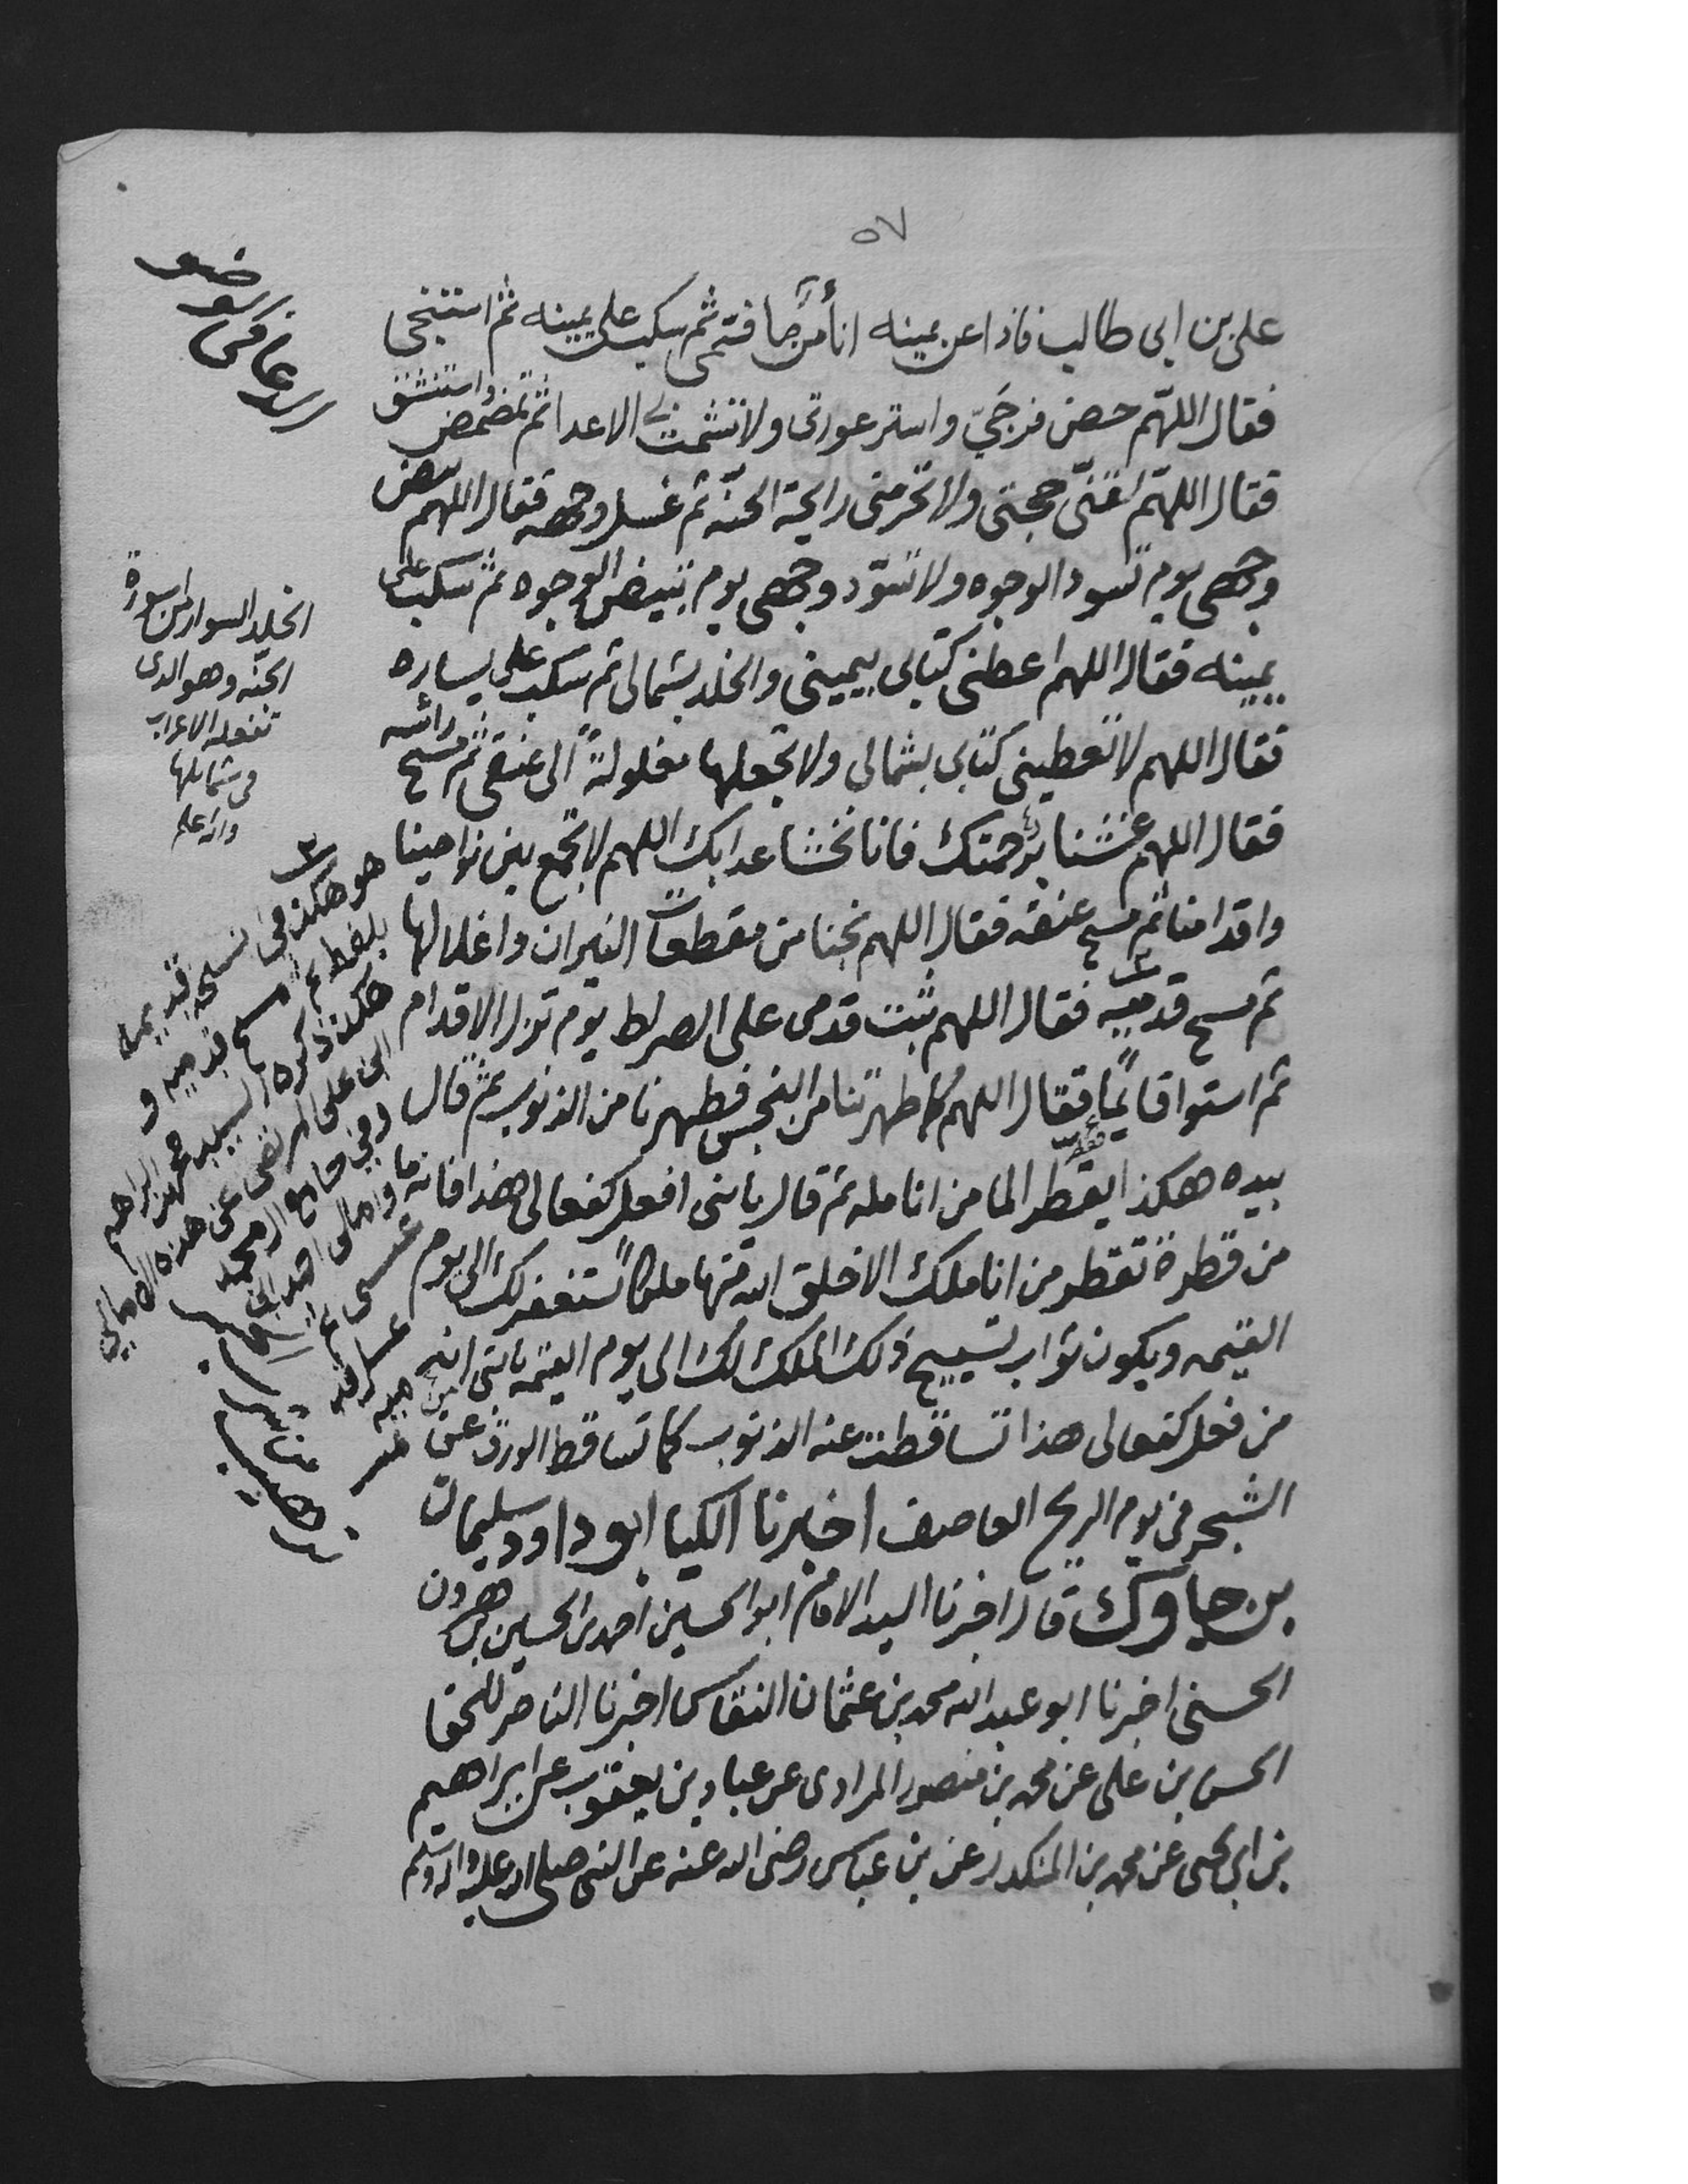 ٥٧
علي بن ابي طالب فاذا عن يمينه انأ من ما فتمى ثم سكب على يمينه ثم استنجى
فقال اللهم حصن فرجيَ واستر عورتى ولا تشمت بي الاعدا ثم تمضمض واستنشق
فقال اللهم لقنّى حجتى ولا تحرمنى رايحة الجنّه ثم غسل وجهه فقال اللهم بيض
وجهى يوم تسود الوجوه ولا تسوّد وجهى يوم تبيض الوجوه ثم سكب على
يمينه فقال اللهم اعطنى كتابى بيمينى والخلد بشمالى ثم سكب على يساره
فقال اللهم لا تعطينى كتابى بشمالى ولا تجعلها مغلولةً الى عنقى ثم مسح رأسه
فقال اللهم غشنا برحمتك فانا نخشا عذابك اللهم لا تجمع بين نواصينا
واقدامنا ثم مسح عنقه فقال اللهم نجنا من مقطعات النيران واغلالها
ثم مسح قدميه فقال اللهم ثبت قدمى على الصراط يوم تزل الاقدام
ثم استوا قايمًا فقال اللهم كما طهرتنا من النجس فطهرنا من الذنوب ثم قال
بيده هكذا يقطر الما من انامله ثم قال يا بنى افعل كفعالى هذا فانه ما
من قطرة تقطر من اناملك الا خلق الله منها ملكاً يستغفر لك الى يوم
القيمه ويكون ثواب تسبيح ذلك الملك لك الى يوم القيمه يا بنى انه
من فعل كفعالى هذا تساقطت عنه الذنوب كما تساقط الورق عن
الشجر فى يوم الريح العاصف اخبرنا الكيا ابو داود سليمان
بن جاوك قال اخبرنا السيد الامام ابو الحسين احمد بن الحسين بن هرون
الحسنى اخبرنا ابو عبد الله محمد بن عثمان النقاس اخبرنا الناصر للحق
الحسن بن على عن محمد بن منصور المرادى عن عباد بن يعقوب عن ابراهيم
بن ابى يحيى عن محمد بن المنكدر عن بن عباس رضى الله عنه عن النبى صلى الله عليه واله وسلم
الدعا فى الوضو
الخلد السوار من اسورة
الجنّه وهو الذى
تفعله الاعراب
فى شمايلها
والله اعلم
هو هكذا فى نسخه قديمه
بلفظ ثم مسح قدميه و
هكذا ذكره السيد محمد بن ابراهيم
ابن على المرتضى عن هذه الامالى